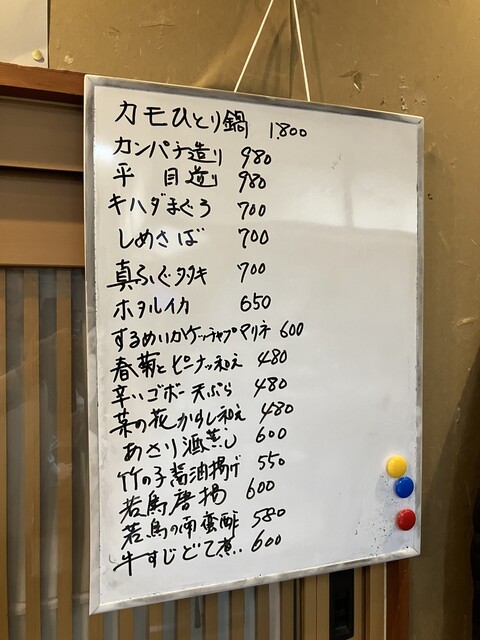 カモひとり鍋 1,800
カンパチ造り 980
平目造り 980
キハダまぐろ 700
しめさば 700
真ふぐタタキ 700
ホタルイカ 650
するめいかケッチャプマリネ 600
春菊とピーナッツ和え 480
辛いゴボー天ぷら 480
菜の花からし和え 480
あさり酒蒸し 600
竹の子醤油揚げ 550
若鳥唐揚 600
若鳥の南蛮酢 580
牛すじどて煮 600